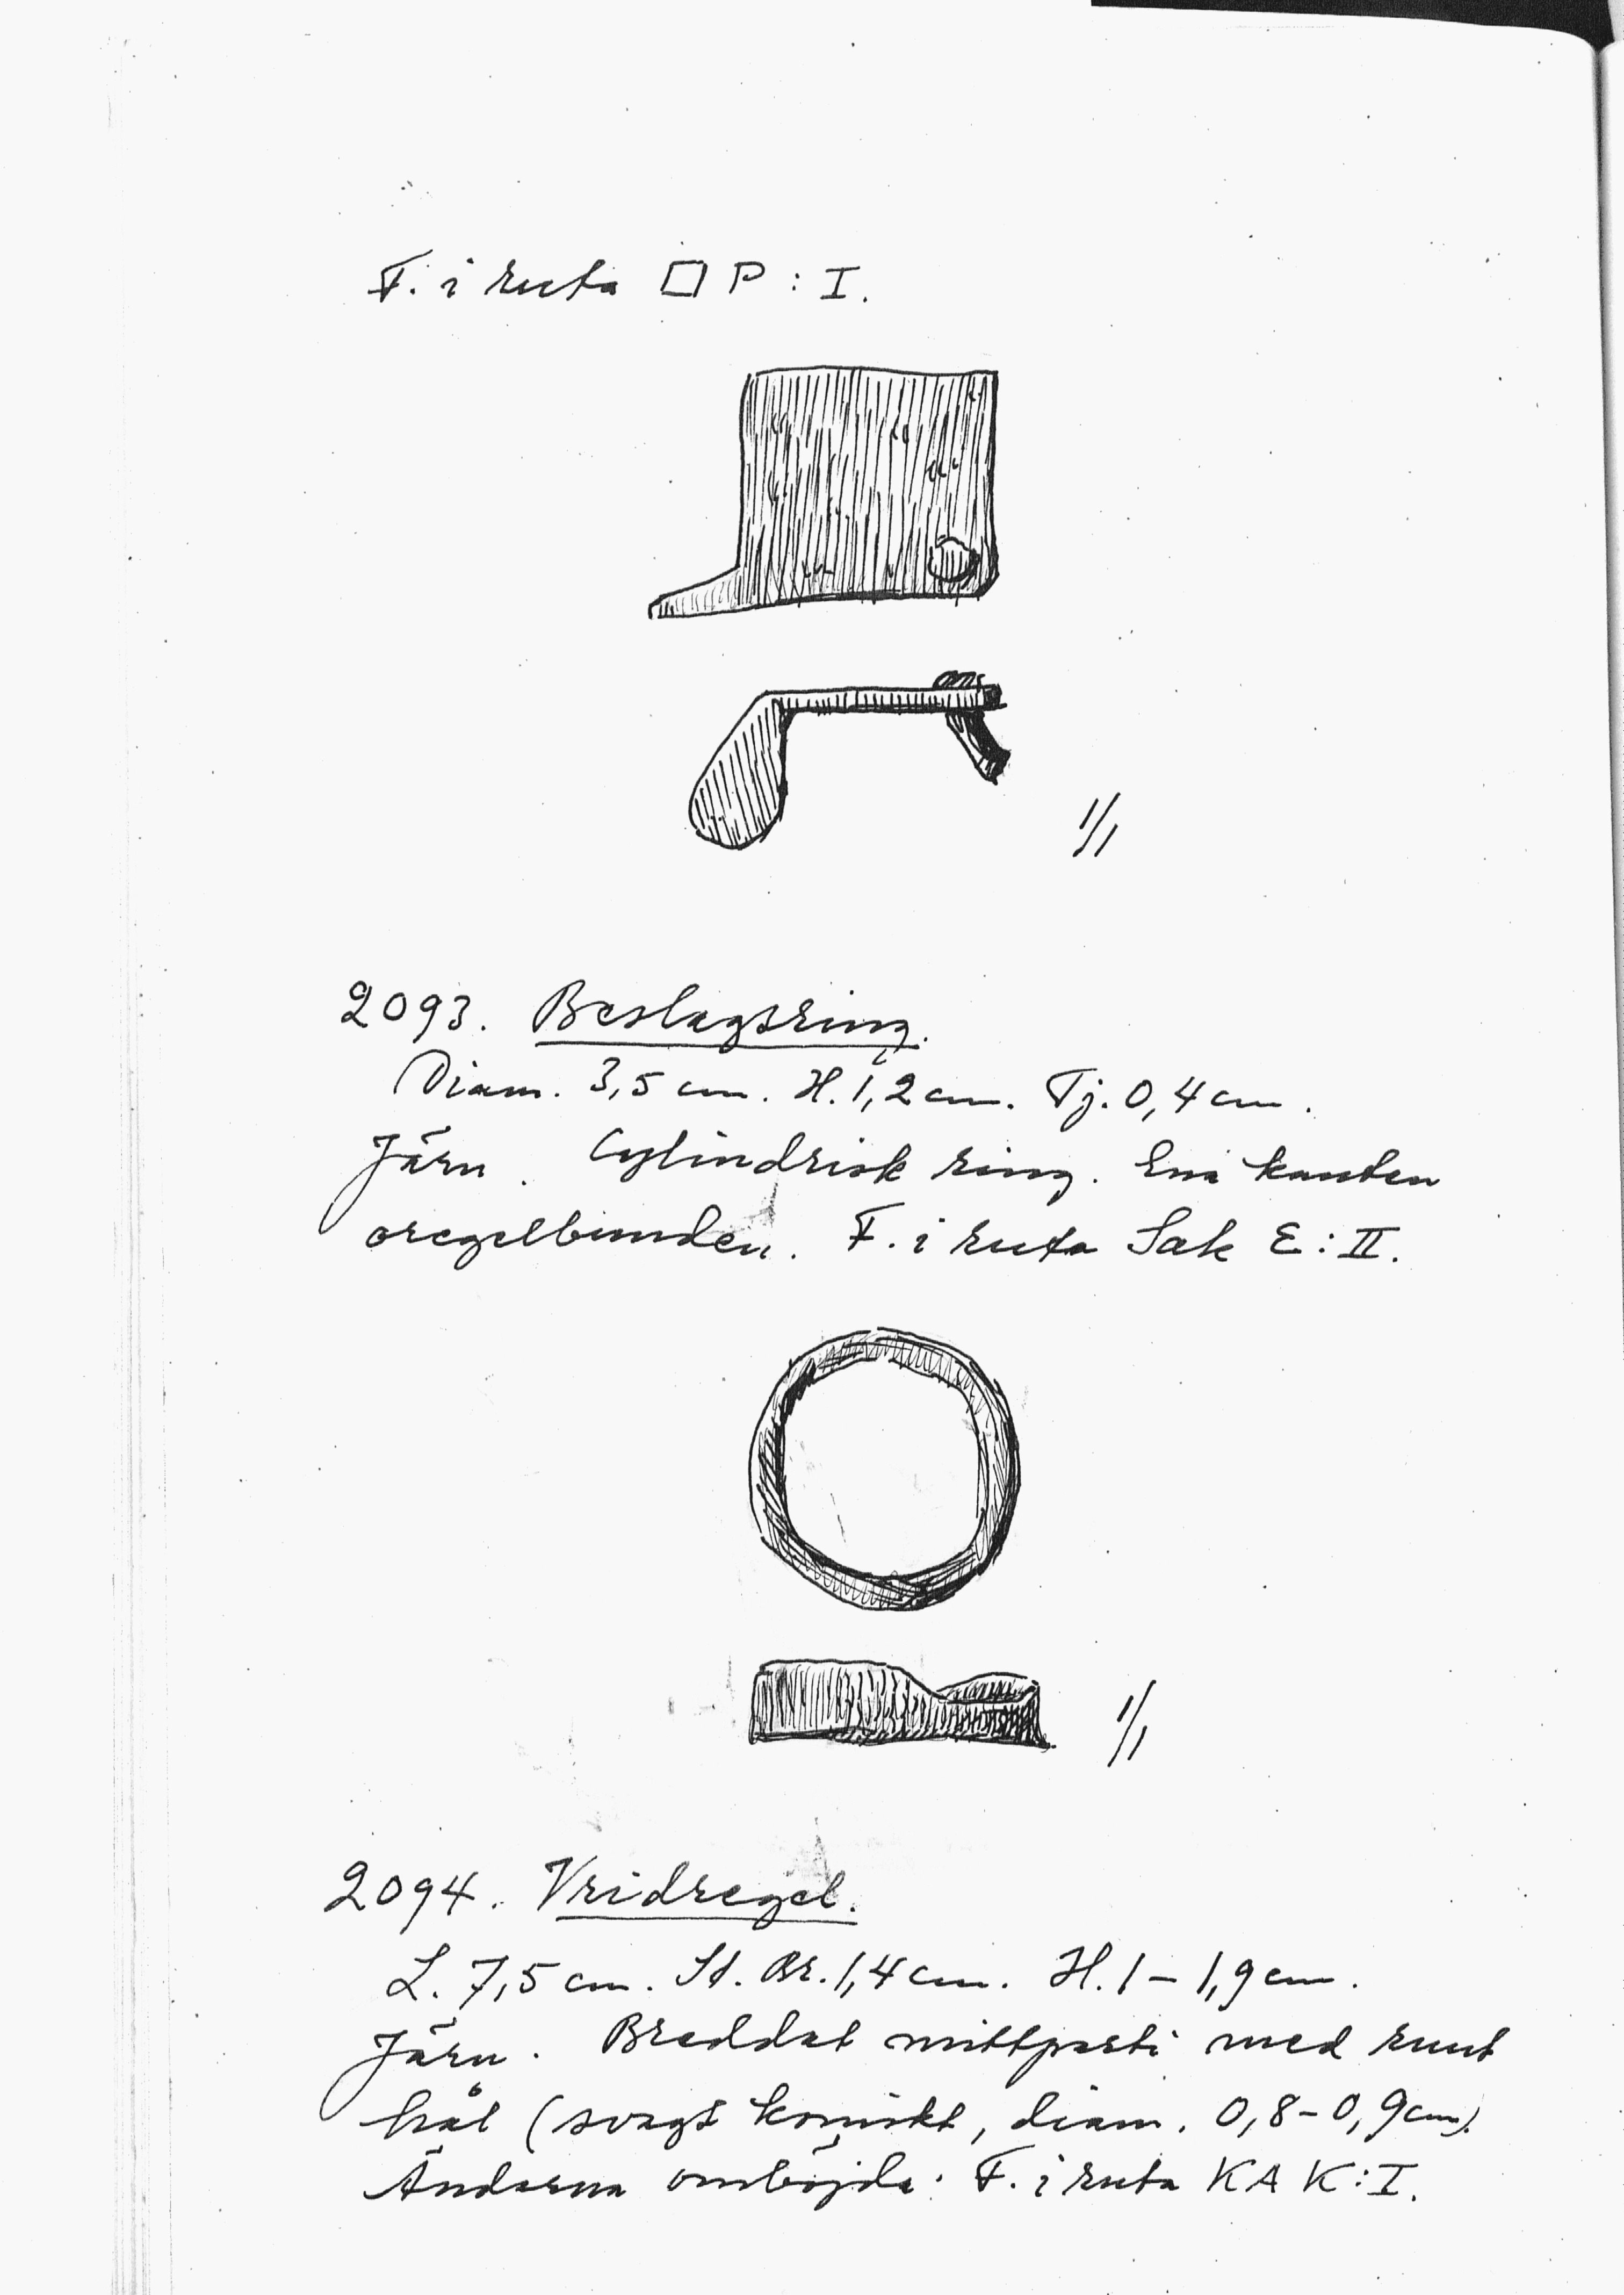 F. i ruta □ P : I.
1/1
2093. Beslagsring.
Diam. 3,5 cm. H. 1,2 cm. Tj. 0,4 cm.
Järn. Cylindrisk ring. Ena kanten
oregelbunden. F. i ruta Sak E : II.
1/1
2094. Vridregel.
L. 7,5 cm. St. Br. 1,4 cm. H. 1 – 1,9 cm.
Järn. Breddat mittparti med runt
hål (svagt koniskt, diam. 0,8 – 0,9 cm).
Ändarna omböjda. F. i ruta KA K : I.